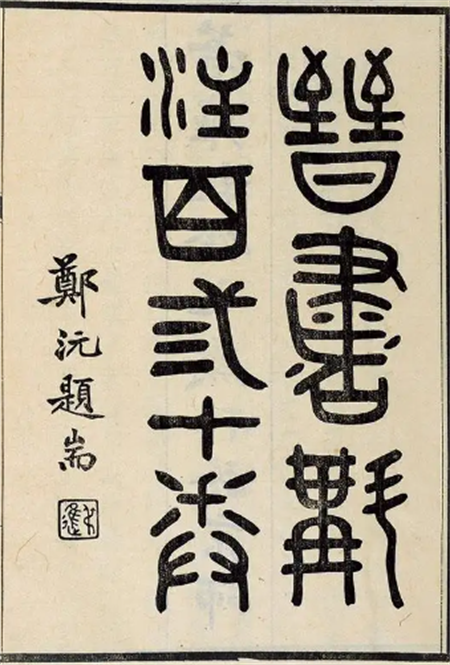 晉書斠
注百弎十卷
鄭沅題耑